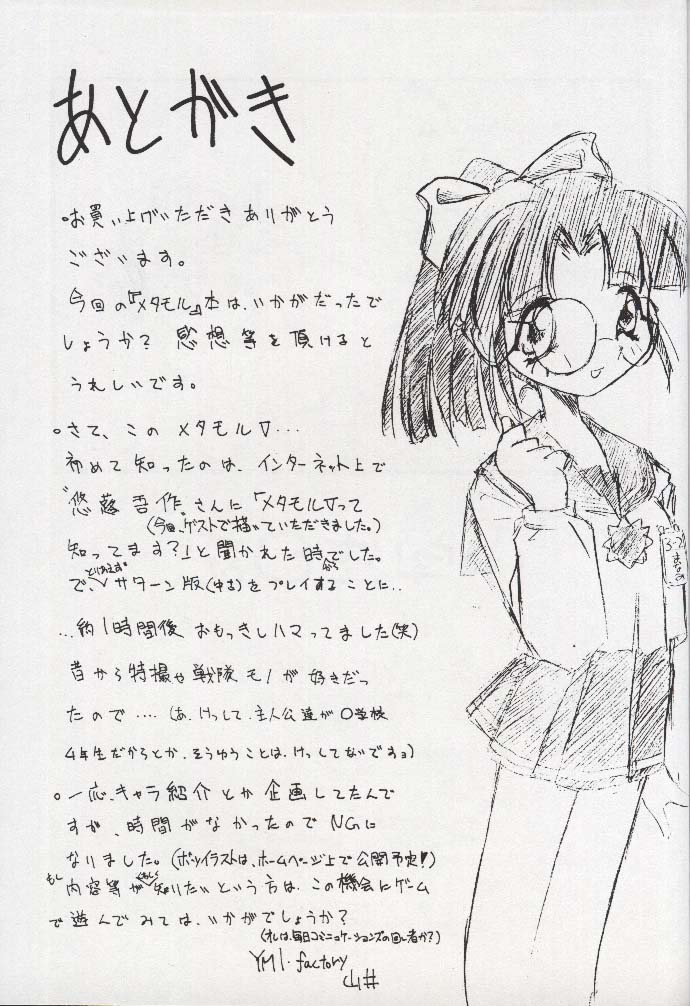 あとがき
。お買い上げいただきありがとう
ございます。
今回の『メタモル』本は、いかがだったで
しょうか? 感想等を頂けると
うれしいです。
。さて、このメタモル▽…
初めて知ったのは、インターネット上で
"悠藤吾作"さんに「メタモル▽って
(今回、ゲストで描いていただきました。)
知ってます?」と聞かれた時からでした。
で、とりあえずサターン版(中古)をプレイすることに‥
…約1時間後 おもっきしハマってました(笑)
昔から特撮や戦隊モノが好きだっ
たので‥‥(あ、けっして、主人公達が〇学校
4年生だからとか、そうゆうことは、けっしてないですョ)
。一応、キャラ紹介とか企画してたんで
すが、時間がなかったのでNGに
なりました。(ボツイラストは、ホームページ上で公開予定♥)
もし内容等がくわしく知りたいという方は、この機会にゲーム
で遊んでみては、いかがでしょうか?
(オレは、毎日コミニュケーションズの回し者か?)
YMI・factory
山井